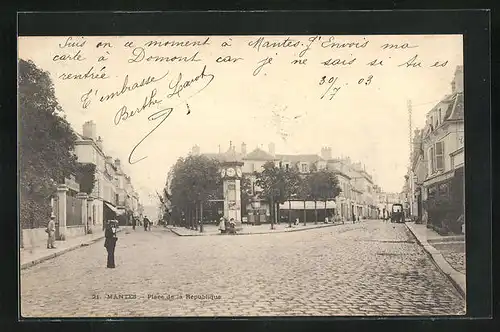 Suis en ce moment à Mantes. J'Envois ma
carte à Domont car je ne sais si tu es
rentrée
30/7 03
T'embrasse
Berthe
21. MANTES. - Place de la République